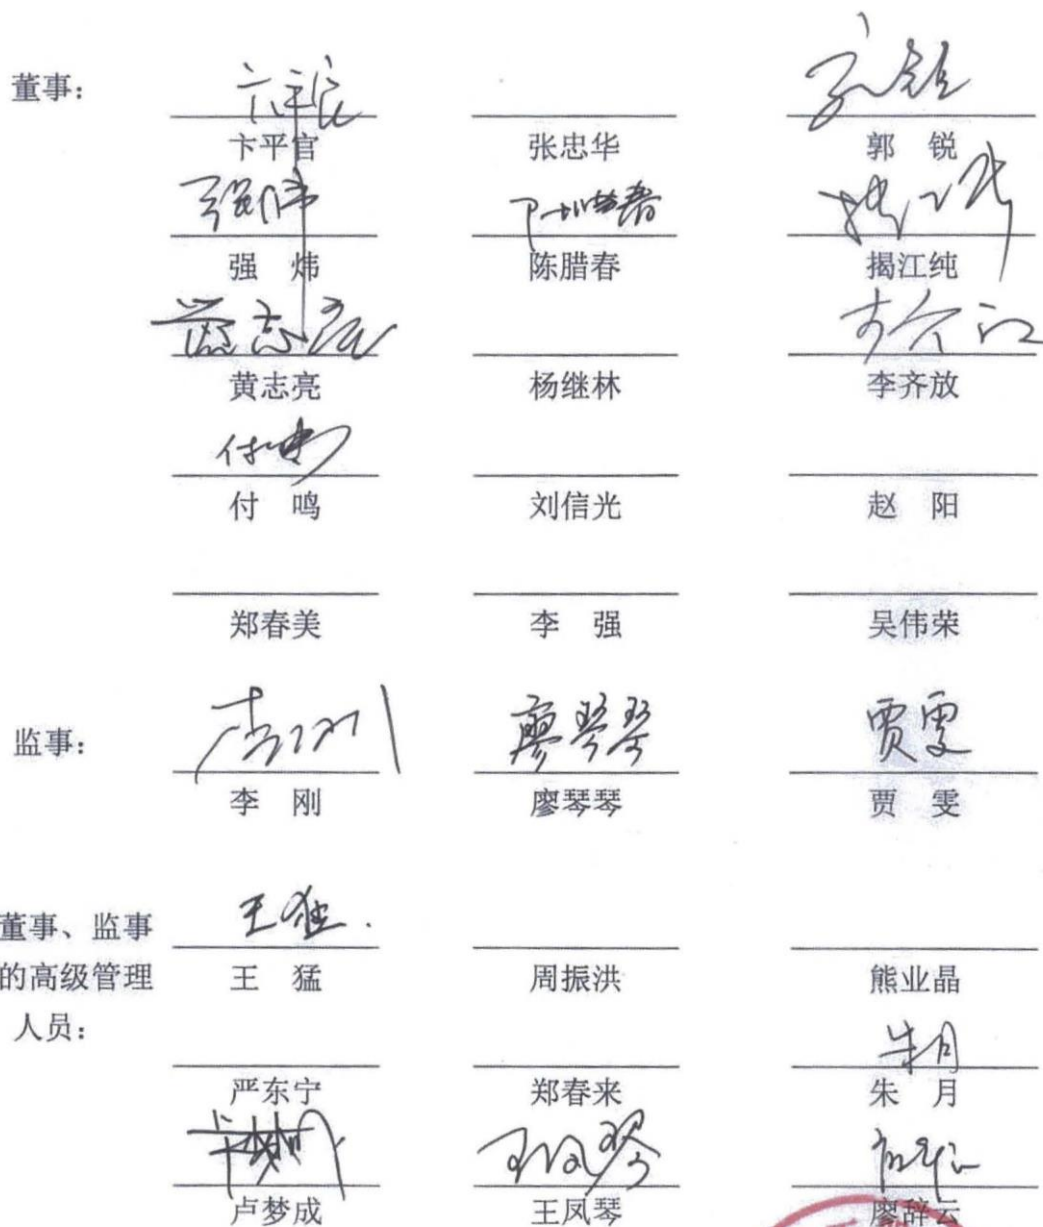 董事：
卞平官 张忠华 郭 锐
强 炜 陈腊春 揭江纯
黄志亮 杨继林 李齐放
付鸣
付 鸣 刘信光 赵 阳
郑春美 李 强 吴伟荣
李刚 廖琴琴 贾雯
监事：
李 刚 廖琴琴 贾 雯
王猛
董事、监事
的高级管理
人员：
王 猛 周振洪 熊业晶
朱月
严东宁 郑春来 朱 月
王凤琴
卢梦成 王凤琴 廖辞云